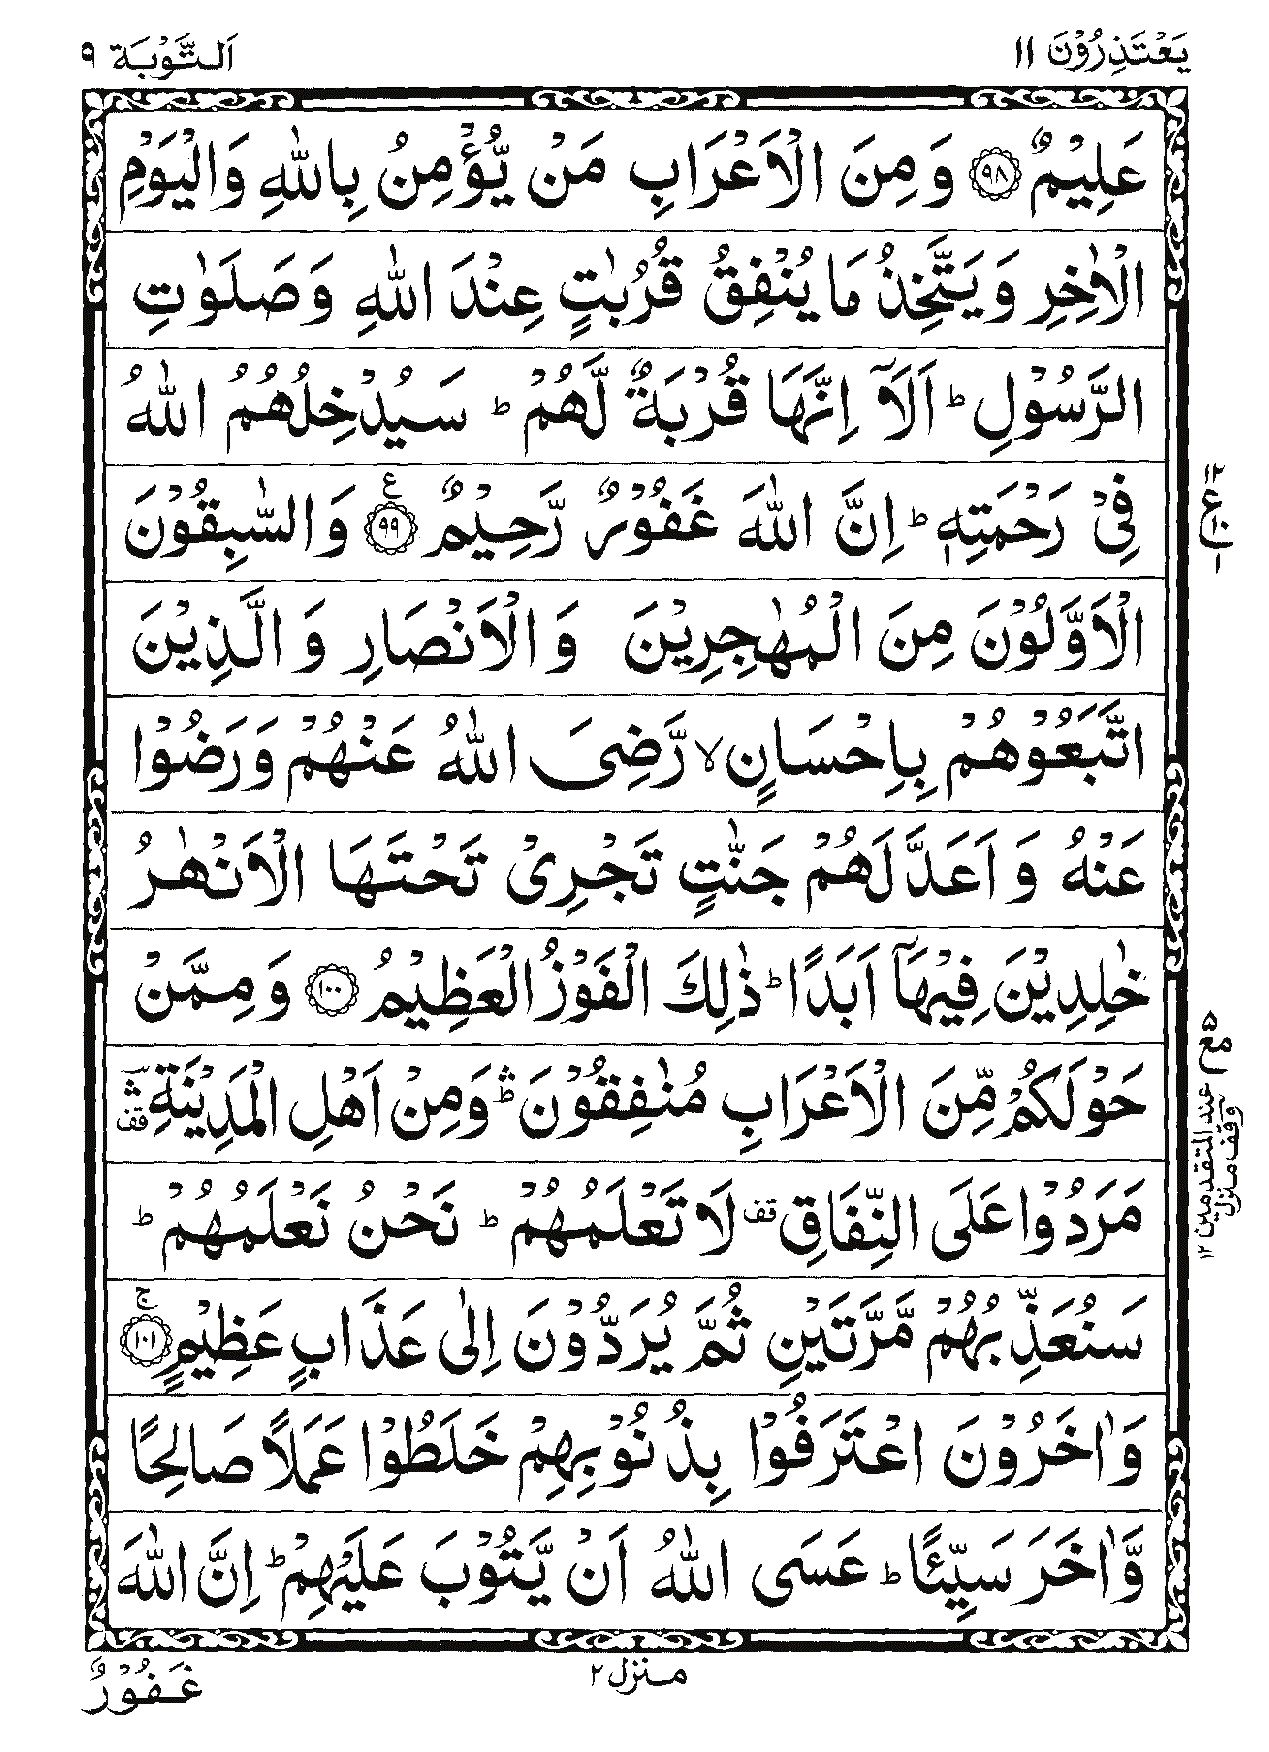 يَعْتَذِرُوْنَ ١١
اَلتَّوْبَة ٩
عَلِيْمٌ ﴿٩٨﴾ وَ مِنَ الْاَعْرَابِ مَنْ يُّؤْمِنُ بِاللّٰهِ وَالْيَوْمِ
الْاٰخِرِ وَ يَتَّخِذُ مَا يُنْفِقُ قُرُبٰتٍ عِنْدَ اللّٰهِ وَ صَلَوٰتِ
الرَّسُوْلِ ؕ اَلَاۤ اِنَّهَا قُرْبَةٌ لَّهُمْ ؕ سَيُدْخِلُهُمُ اللّٰهُ
فِىْ رَحْمَتِهٖ ؕ اِنَّ اللّٰهَ غَفُوْرٌ رَّحِيْمٌ ﴿٩٩﴾ ع وَالسّٰبِقُوْنَ
الْاَوَّلُوْنَ مِنَ الْمُهٰجِرِيْنَ وَ الْاَنْصَارِ وَ الَّذِيْنَ
اتَّبَعُوْهُمْ بِاِحْسَانٍ ۙ رَّضِىَ اللّٰهُ عَنْهُمْ وَ رَضُوْا
عَنْهُ وَ اَعَدَّ لَهُمْ جَنّٰتٍ تَجْرِىْ تَحْتَهَا الْاَنْهٰرُ
خٰلِدِيْنَ فِيْهَاۤ اَبَدًا ؕ ذٰلِكَ الْفَوْزُ الْعَظِيْمُ ﴿١٠٠﴾ وَ مِمَّنْ
حَوْلَكُمْ مِّنَ الْاَعْرَابِ مُنٰفِقُوْنَ ؕۛ وَ مِنْ اَهْلِ الْمَدِيْنَةِ ۛ قف
مَرَدُوْا عَلَى النِّفَاقِ قف لَا تَعْلَمُهُمْ ؕ نَحْنُ نَعْلَمُهُمْ ؕ
سَنُعَذِّبُهُمْ مَّرَّتَيْنِ ثُمَّ يُرَدُّوْنَ اِلٰى عَذَابٍ عَظِيْمٍ ﴿١٠١﴾ ج
وَ اٰخَرُوْنَ اعْتَرَفُوْا بِذُنُوْبِهِمْ خَلَطُوْا عَمَلًا صَالِحًا
وَّ اٰخَرَ سَيِّئًا ؕ عَسَى اللّٰهُ اَنْ يَّتُوْبَ عَلَيْهِمْ ؕ اِنَّ اللّٰهَ
١٢
ع
١٠
١
٥
مع
عند المتقدمين ١٢
وقف منزل
منزل ٢
غَفُوْرٌ